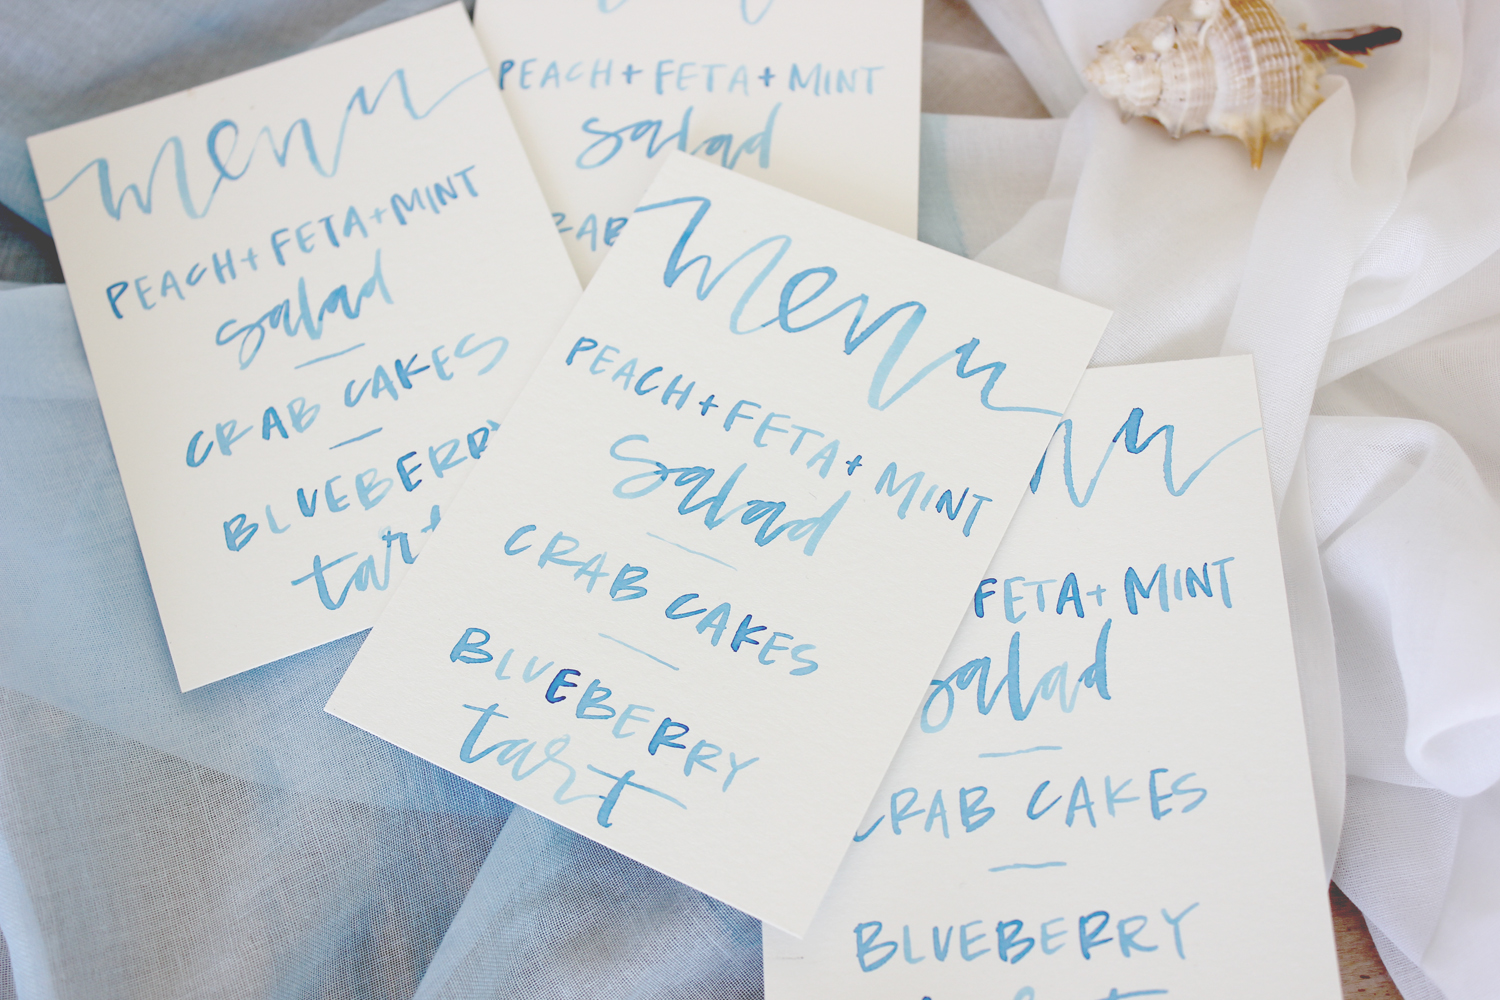 menu
PEACH + FETA + MINT
salad
CRAB CAKES
BLUEBERRY
tart
PEACH + FETA + MINT
salad
CRAB
menu
PEACH + FETA + MINT
salad
CRAB CAKES
BLUEBERRY
tart
FETA + MINT
salad
CRAB CAKES
BLUEBERRY